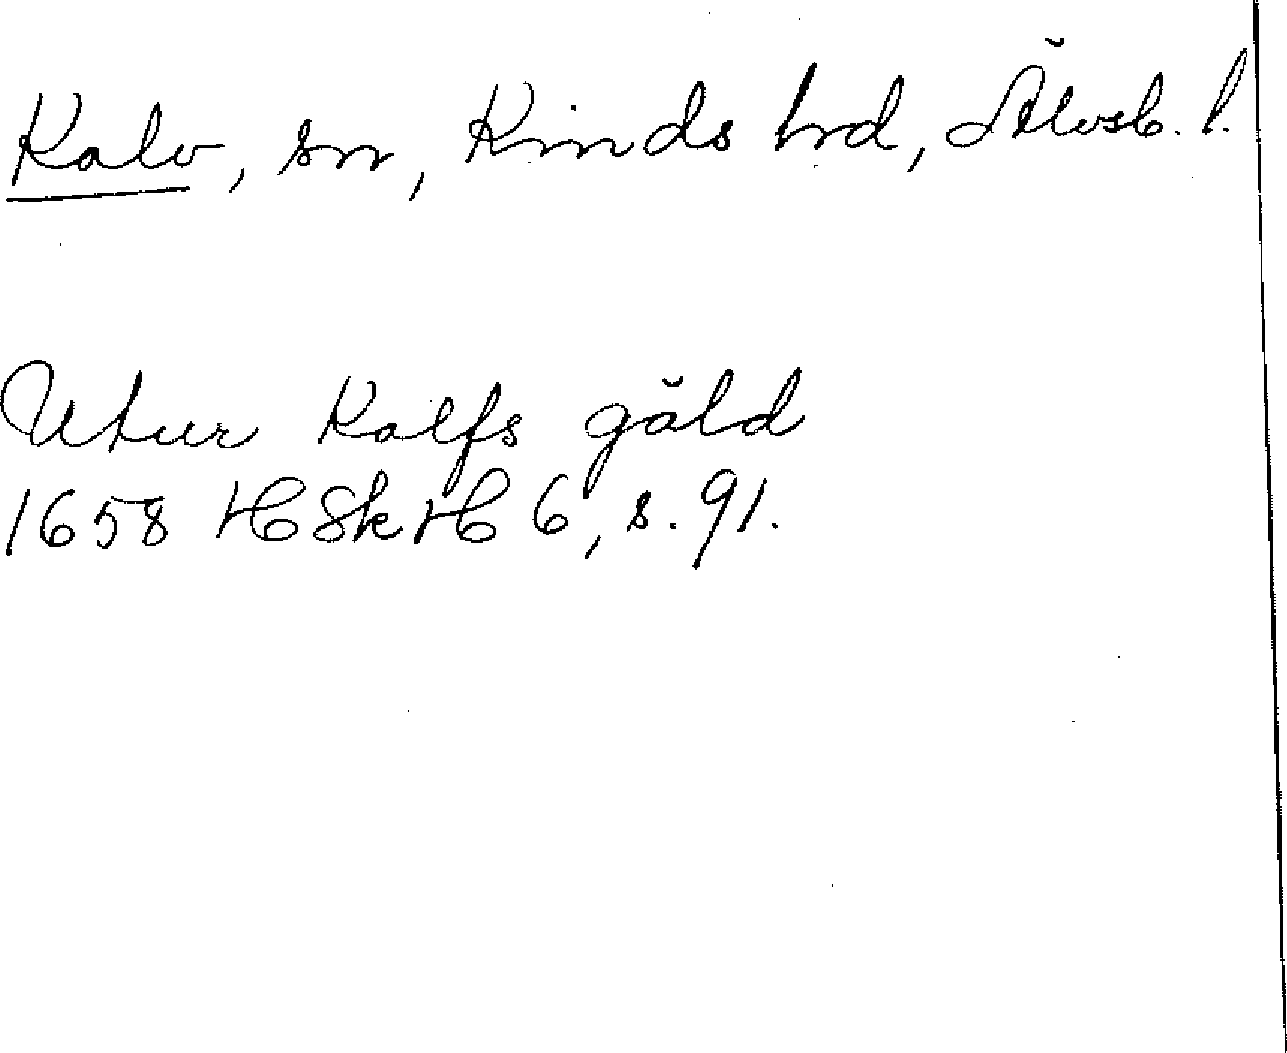 Kalv, sn, Kinds hrd, Älvsb. l.
Utur Kalfs gäld
1658 HSkH 6, s. 91.